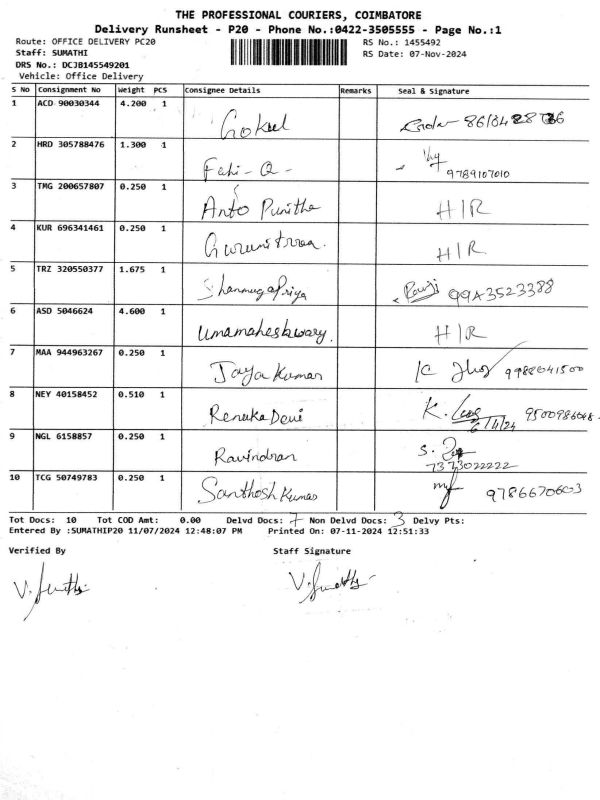 THE PROFESSIONAL COURIERS, COIMBATORE
Delivery Runsheet - P20 - Phone No.:0422-3505555 - Page No.:1
Route: OFFICE DELIVERY PC20 RS No.: 1455492
Staff: SUMATHI RS Date: 07-Nov-2024
DRS No.: DCJB145549201
Vehicle: Office Delivery
S No Consignment No Weight PCS Consignee Details Remarks Seal & Signature
1 ACD 90030344 4.200 1 Gokul
2 HRD 305788476 1.300 1 9789107010
3 TMG 200657807 0.250 1 Anto Punitha H/R
4 KUR 696341461 0.250 1 H/R
5 TRZ 320550377 1.675 1 Shanmugapriya
6 ASD 5046624 4.600 1 Umamaheshwary. H/R
7 MAA 944963267 0.250 1 Jaya Kumar
8 NEY 40158452 0.510 1 Renuka Devi K.
9 NGL 6158857 0.250 1 Ravindran S.
7373022222
10 TCG 50749783 0.250 1 Santhosh Kumar 9786670603
Tot Docs: 10 Tot COD Amt: 0.00 Delvd Docs: 7 Non Delvd Docs: 3 Delvy Pts:
Entered By :SUMATHIP20 11/07/2024 12:48:07 PM Printed On: 07-11-2024 12:51:33
Verified By Staff Signature
V. Sumathi V. Sumathi